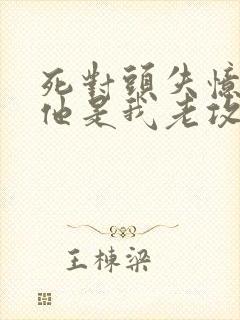 死對頭失憶
他是我老攻
王棟梁